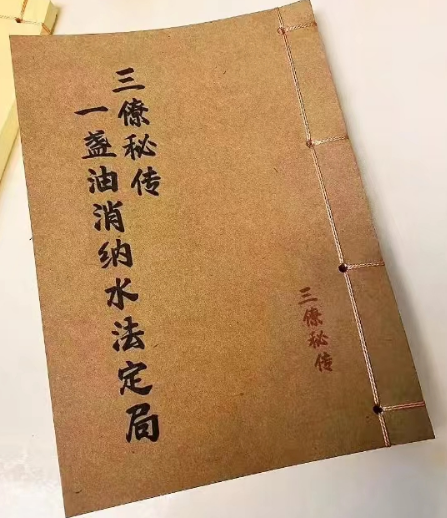 三僚秘传
一盏油消纳水法定局
三僚秘传